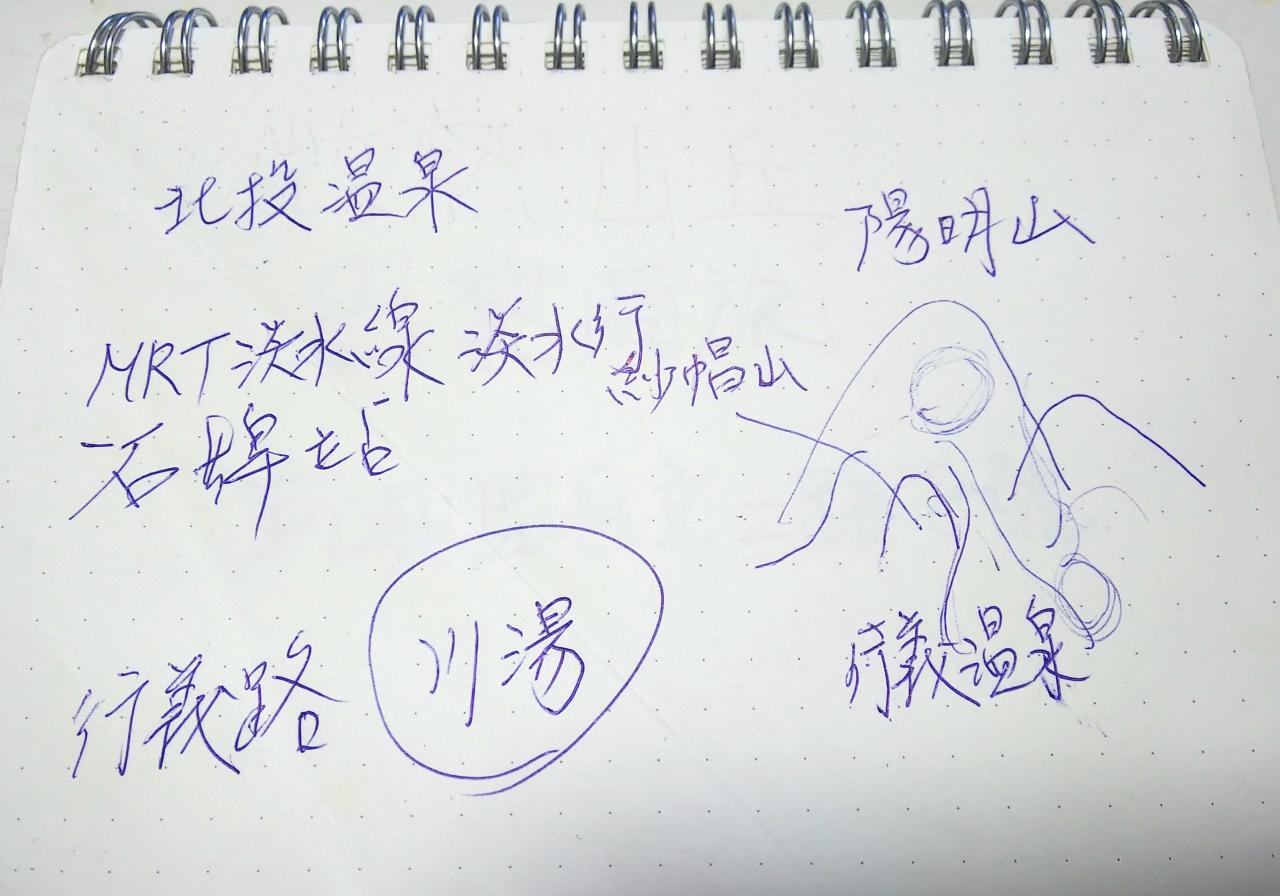 北投温泉
陽明山
MRT淡水線 淡水行
紗帽山
石牌站
行義路
川湯
行義温泉